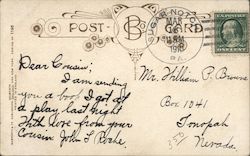 POST CARD
B
MAR
Dear Cousin;
I am sending
you a book I got at
a play last night
With love from your
Cousin John L
Mr. William P. Browne
Box 1041
Tonopah
Nevada.